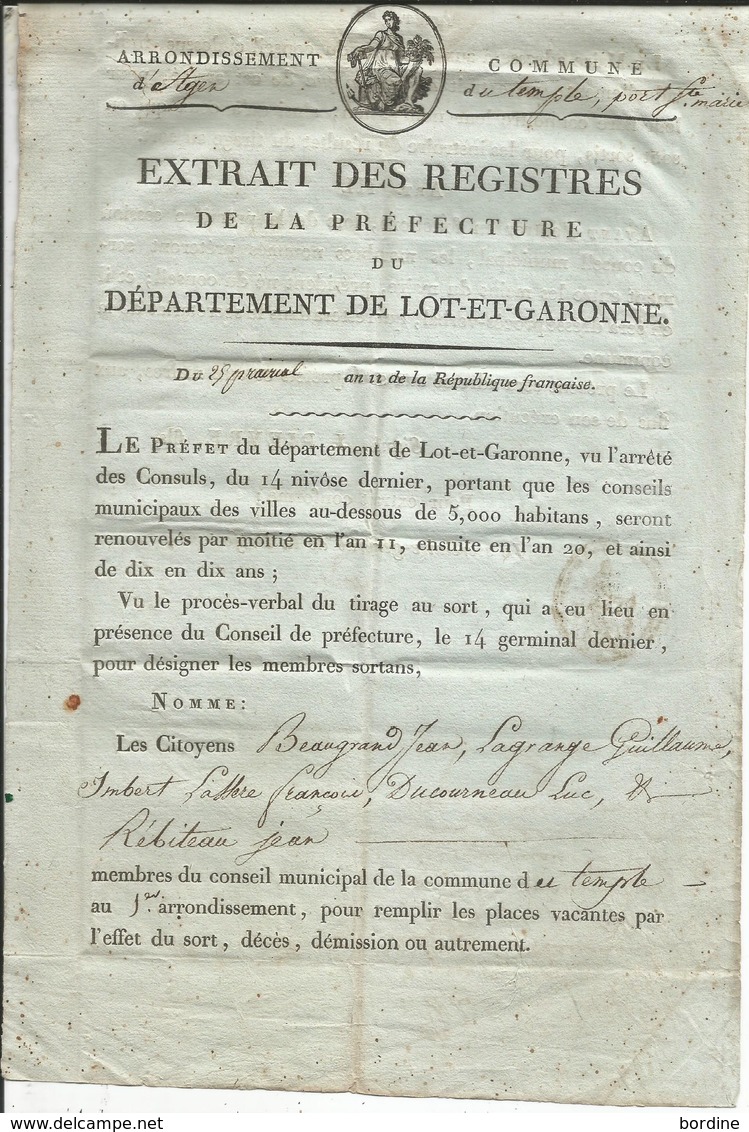 ARRONDISSEMENT
d'Agen
COMMUNE
du temple, port Ste. marie
EXTRAIT DES REGISTRES
DE LA PRÉFECTURE
DU
DÉPARTEMENT DE LOT-ET-GARONNE.
Du 25 prairial an 11 de la République française.
LE PRÉFET du département de Lot-et-Garonne, vu l'arrêté
des Consuls, du 14 nivôse dernier, portant que les conseils
municipaux des villes au-dessous de 5,000 habitans, seront
renouvelés par moitié en l'an 11, ensuite en l'an 20, et ainsi
de dix en dix ans;
Vu le procès-verbal du tirage au sort, qui a eu lieu en
présence du Conseil de préfecture, le 14 germinal dernier,
pour désigner les membres sortans,
NOMME:
Les Citoyens Beaugrand Jean, Lagrange Guillaume,
Imbert François, Ducourneau Luc, &
Rébiteau jean
membres du conseil municipal de la commune du temple
au 1er. arrondissement, pour remplir les places vacantes par
l'effet du sort, décès, démission ou autrement.
bordine